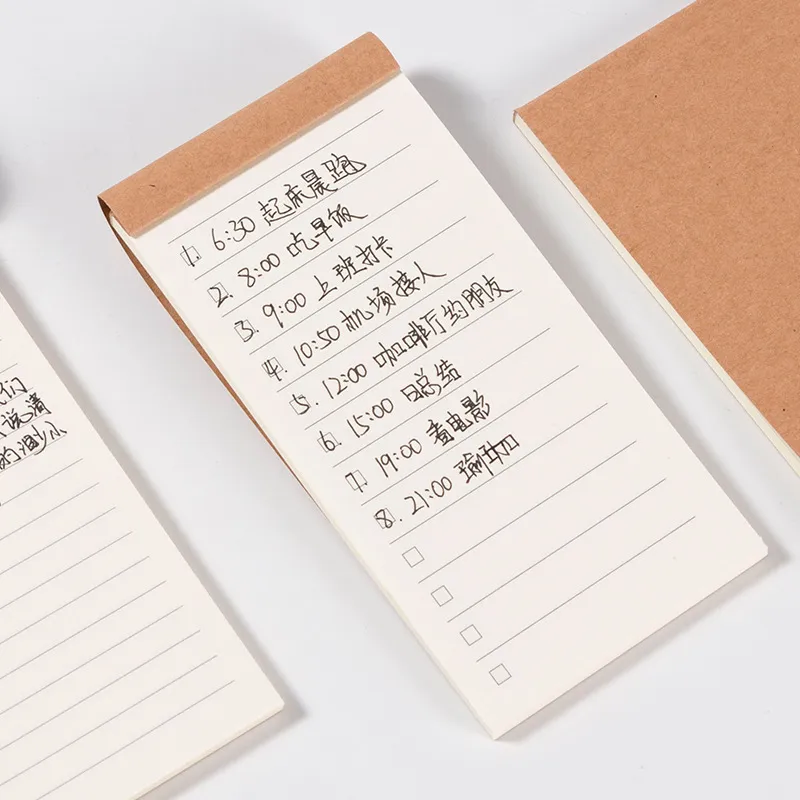 们
说清
的泪少小
1. 6:30 起床晨跑
2. 8:00 吃早饭
3. 9:00 上班打卡
4. 10:50 机场接人
5. 12:00 咖啡厅约朋友
6. 15:00 日总结
7. 19:00 看电影
8. 21:00 瑜伽